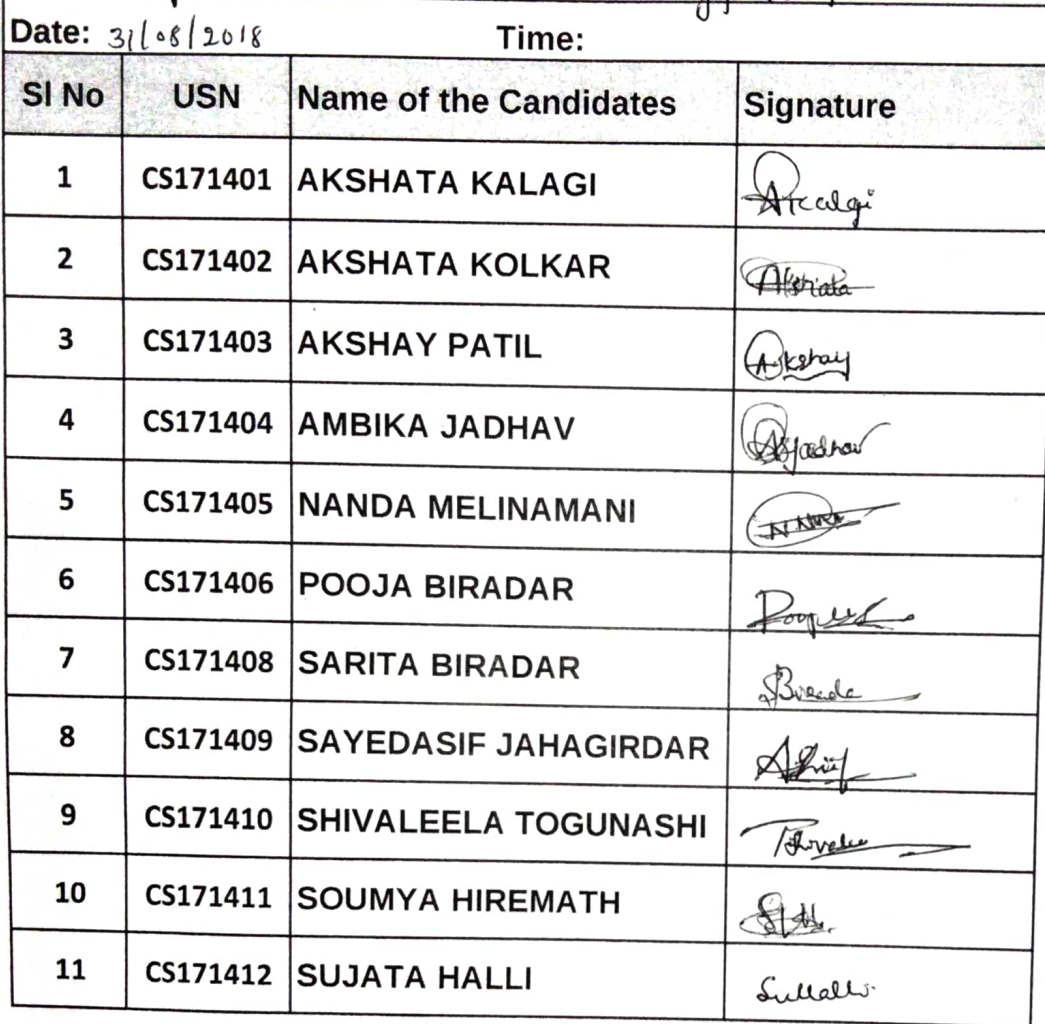 Date: 31/08/2018 Time:
Sl No USN Name of the Candidates Signature
1 CS171401 AKSHATA KALAGI AKalgi
2 CS171402 AKSHATA KOLKAR Akshata
3 CS171403 AKSHAY PATIL Akshay
4 CS171404 AMBIKA JADHAV ASJadhav
5 CS171405 NANDA MELINAMANI
6 CS171406 POOJA BIRADAR
7 CS171408 SARITA BIRADAR
8 CS171409 SAYEDASIF JAHAGIRDAR
9 CS171410 SHIVALEELA TOGUNASHI
10 CS171411 SOUMYA HIREMATH
11 CS171412 SUJATA HALLI